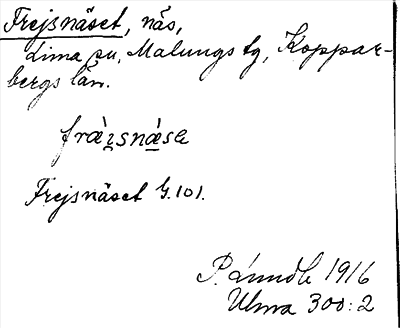 Frejsnäset, näs,
Lima sn, Malungs tg, Koppar-
bergs län.
Frejsnäset G. 101.
1916
Ulma 300:2